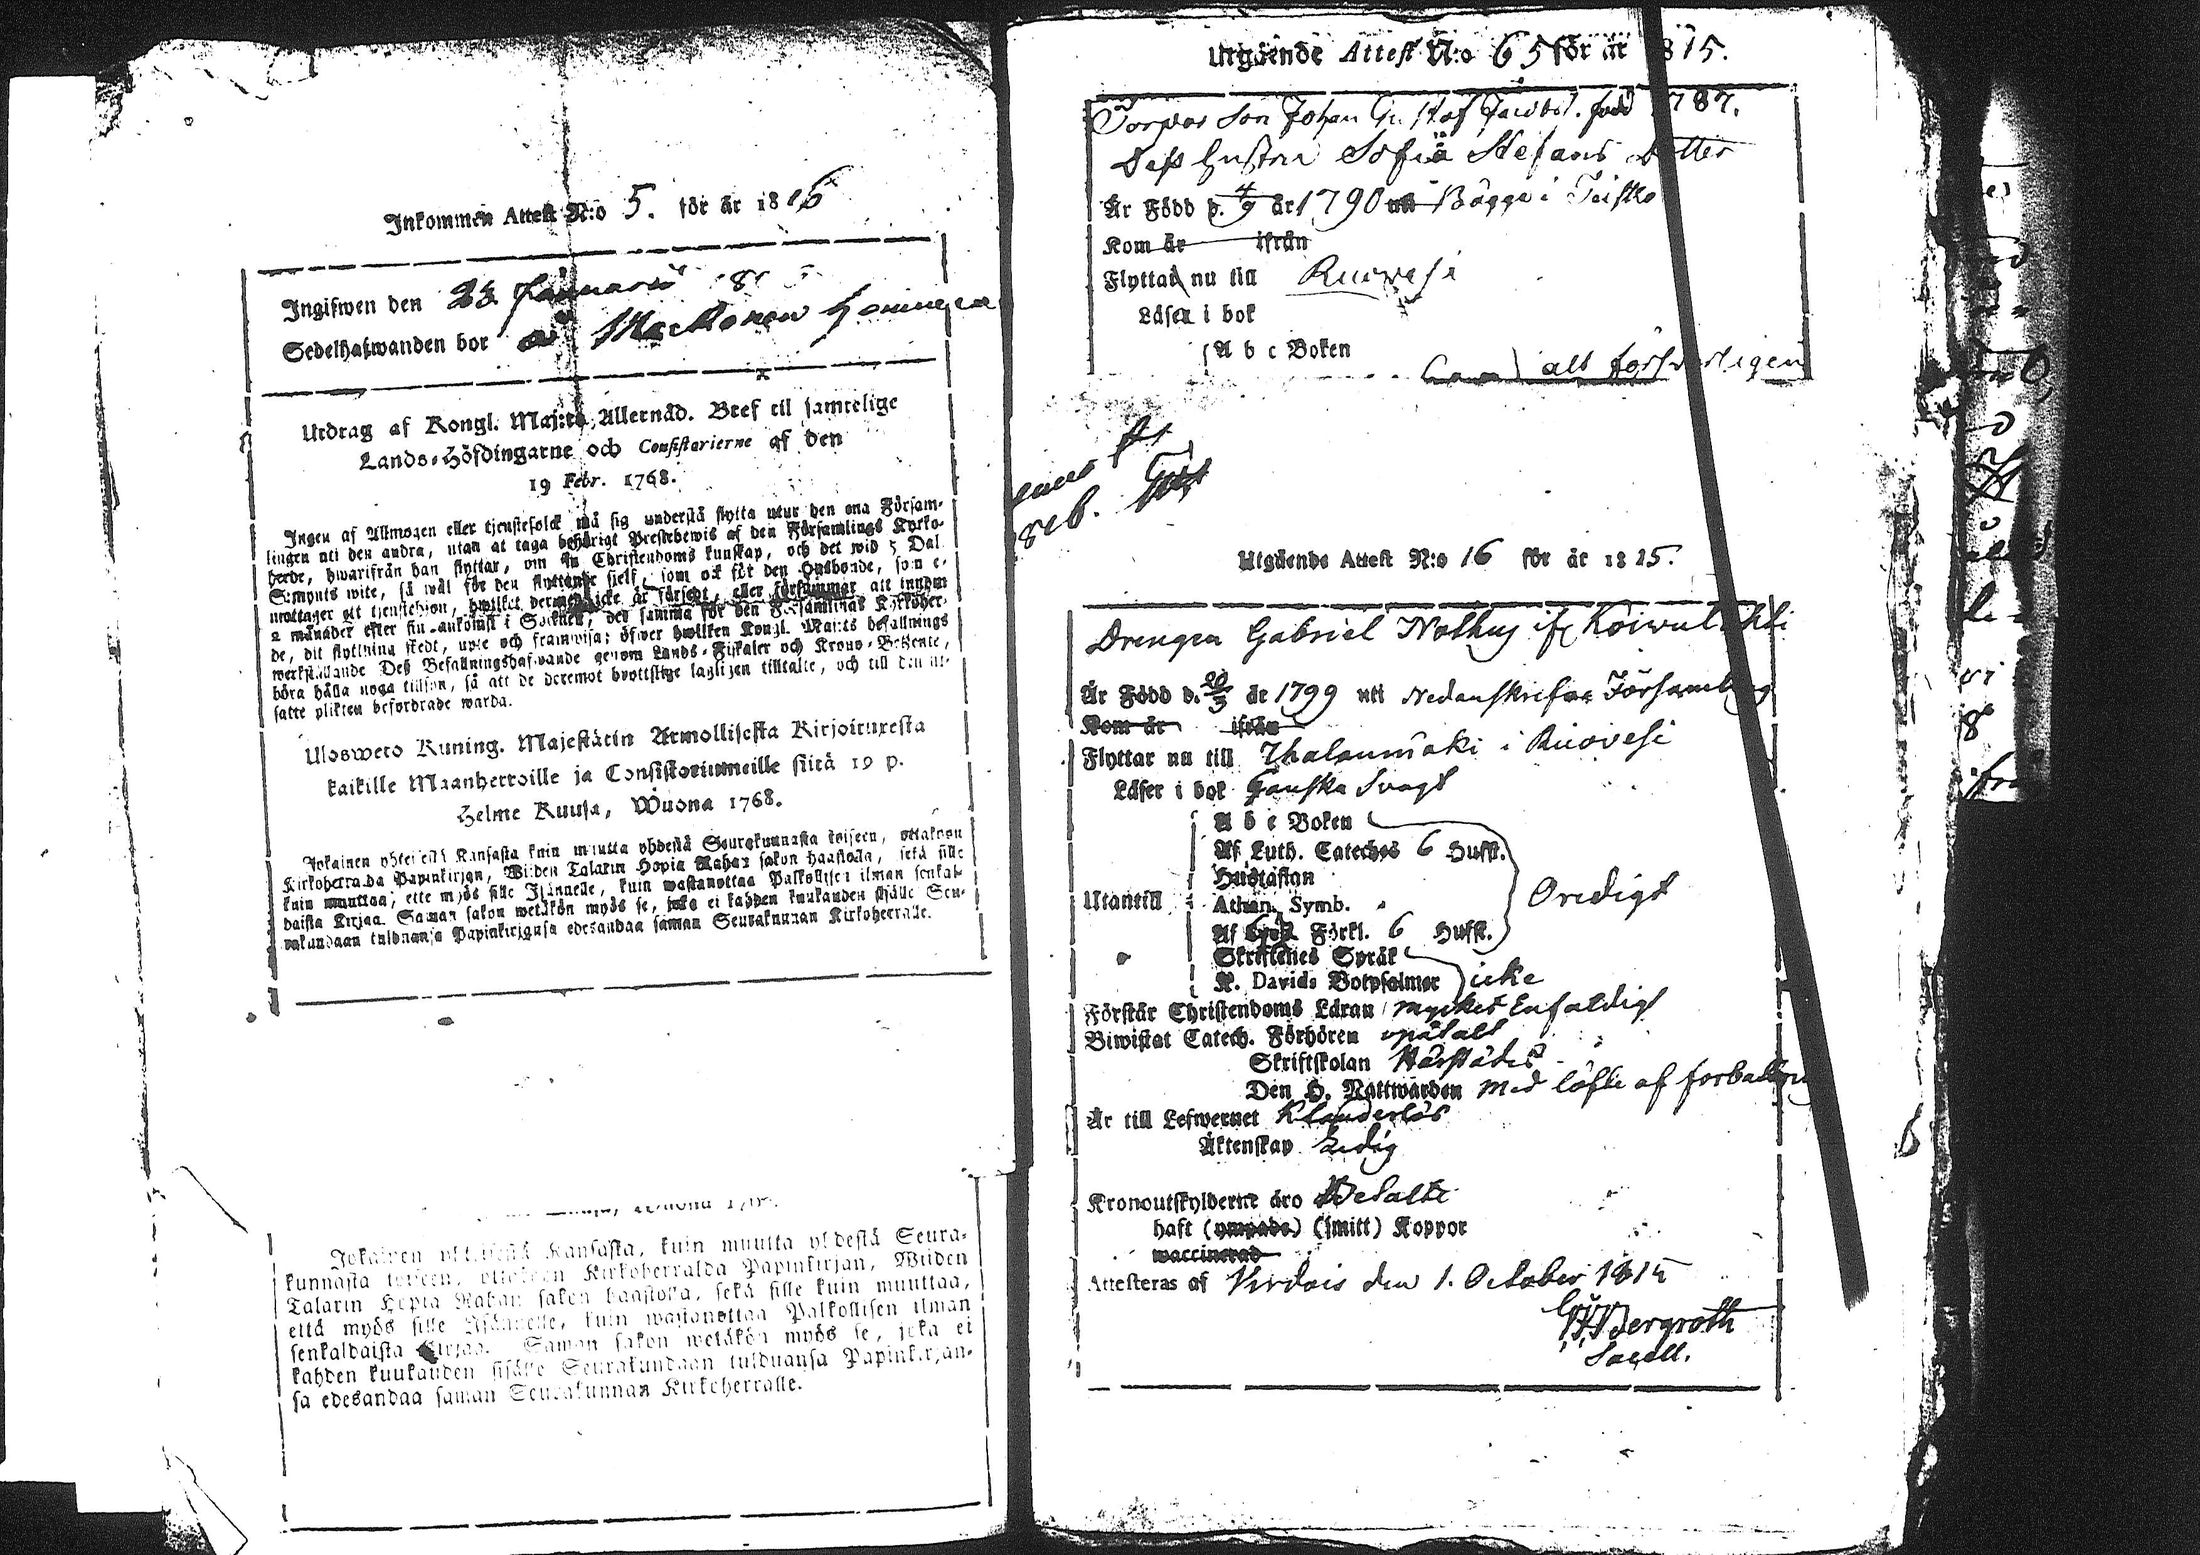 Inkommen Attest N:o 5. för år 1816
Ingifwen den 28 Januarii 181
Sedelhafwanden bor
Utdrag af Kongl. Maj:ts Allernåd. Bref til samtelige
Lands-Höfdingarne och Consistorierne af den
19 Febr. 1768.
Ingen af Allmogen eller tjenstefolck må sig understå flytta utur den ena Försam-
lingen uti den andra, utan at taga behörigt Prestebewis af den Församlings Kyrko-
herde, hwarifrån han flyttar, om sin Christendoms kunskap, och det wid 5 Dal.
S:mynts wite, så wäl för den flyttande sielf, som ock för den Husbonde, som e-
mottager ett tjenstehjon, hwilket dermed icke är försedt, eller försummar att innom
2 månader efter sin ankomst i Socknen, det samma för den Församlings Kyrkoher-
de, dit flyttning skedt, upte och framwisa; öfwer hwilken Kongl. Maj:ts befallnings
werkställande Deß Befallningshafwande genom Lands-Fiskaler och Krono-Betjente,
böra hålla noga tillsyn, så att de deremot brottslige lagligen tilltalte, och till den ut-
satte plikten befordrade warda.
Ulosweto Kuning. Majestätin Armollisesta Kirjoituxesta
kaikille Maanherroille ja Consistoriumeille siitä 19 p.
Helme Kuusa, Wuona 1768.
Jokainen yhteisestä Kansasta kuin muutta yhdestä Seurakunnasta toiseen, ottakoon
Kirkoherralda Papinkirjan, Wiiden Talarin Hopia Rahan sakon haastolla, sekä sille
kuin muuttaa, että myös sille Isännelle, kuin wastanottaa Palkollisen ilman senkal-
daista Kirjaa. Saman sakon wetäkön myös se, joka ei kahden kuukauden sisälle Seu-
rakundaan tulduansa Papinkirjansa edesandaa saman Seurakunnan Kirkoherralle.
Jokainen yhteisestä Kansasta, kuin muutta yhdestä Seura-
kunnasta toiseen, ottakoon Kirkoherralda Papinkirjan, Wiiden
Talarin Hopia Rahan sakon haastolla, sekä sille kuin muuttaa,
että myös sille Isännelle, kuin wastanottaa Palkollisen ilman
senkaldaista Kirjaa. Saman sakon wetäkön myös se, joka ei
kahden kuukauden sisälle Seurakundaan tulduansa Papinkirjan-
sa edesandaa saman Seurakunnan Kirkoherralle.
Utgående Attest N:o 65 för år 1815.
Torpar Son Johan Gustaf Jacobs. född 1787.
Deß hustru Sofia Stefans Dotter
Är Född d. 4/9 år 1790 uti Bögge i Teisko
Kom år ifrån
Flyttar nu till Ruovesi
Läser i bok
A b c Boken
alt försvarligen
Utgående Attest N:o 16 för år 1815.
Drengen Gabriel Nathus ifr Koiwulahti
Är Född d. 20/3 år 1799 uti Nedanskrifne Församling
Kom år ifrån
Flyttar nu till Ihalanmäki i Ruovesi
Läser i bok Ganska Svagt
A b c Boken
Af Luth. Cateches 6 Hufst.
Hustaflan
Utantill Athan. Symb. Oredigt
Af Förkl. 6 Hufst.
Skriftenes Språk
K. Davids Botpsalmer icke
Förstår Christendoms Läran mycket Enfaldigt
Biwistat Catech. Förhören
Skriftskolan
Den H. Nattwarden med löfte af förbättring
Är till Lefwernet Klanderlös
Äktenskap Ledig
Kronoutskylderne äro Betalte
haft (ympade) (smitt) Koppor
waccinerad
Attesteras af Virdois den 1. October 1815
Bergroth
Sacell.